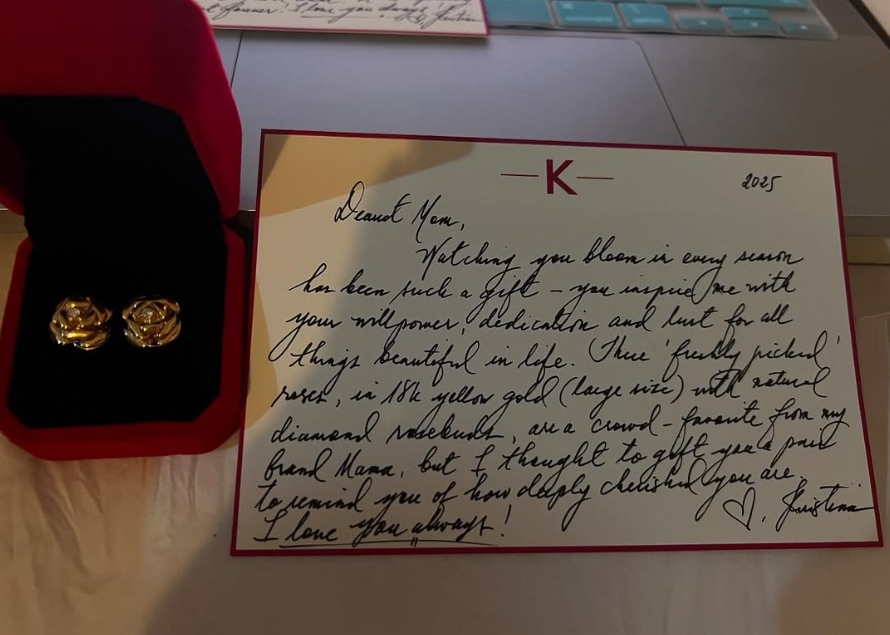 forever! I love you always! Kristina
K
2025
Dearest Mom,
Watching you bloom in every season
has been such a gift – you inspire me with
your willpower, dedication and lust for all
things beautiful in life. These 'freshly picked'
roses, in 18k yellow gold (large size) with natural
diamond rosebuds, are a crowd-favorite from my
brand Mama, but I thought to gift you a pair
to remind you of how deeply cherished you are.
I love you always!
♡, Kristina